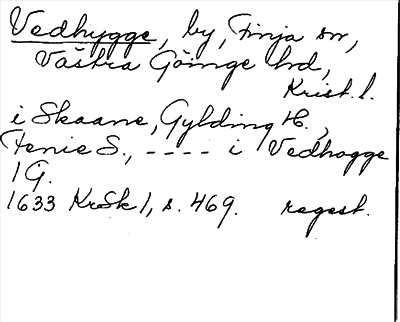 Vedhygge, by, Finja sn,
Västra Göinge hd,
Krist. l.
i Skaane, Gylding H.,
Fenie S., ---- i Vedhogge
1 G.
1633 KrSk 1, s. 469. regest.